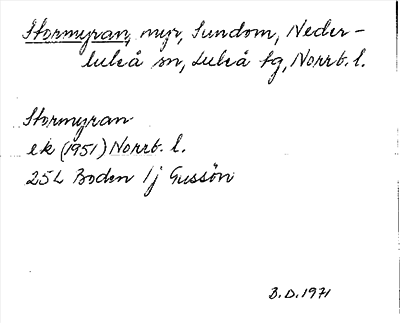 Stormyran, myr, Sundom, Neder-
luleå sn, Luleå tg, Norrb. l.
Stormyran
ek (1951) Norrb. l.
25L Boden 1j Gussön
B.D. 1971